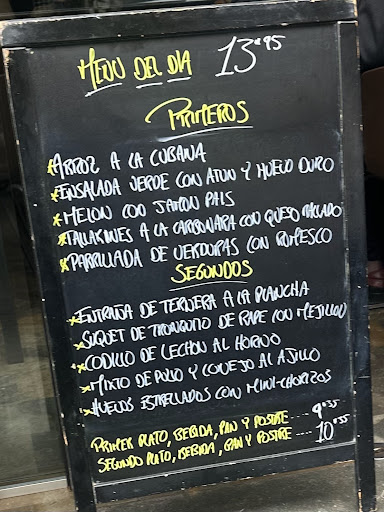 MENU DEL DIA 13€95
PRIMEROS
*ARROZ A LA CUBANA
*ENSALADA VERDE CON ATUN Y HUEVO DURO
*MELON CON JAMON PAIS
*TALLARINES A LA CARBONARA CON QUESO RALLADO
*PARRILLADA DE VERDURAS CON ROMESCO
SEGUNDOS
*ENTRAÑA DE TERNERA A LA PLANCHA
*SUQUET DE TRONQUITO DE RAPE CON MEJILLON
*CODILLO DE LECHON AL HORNO
*MIXTO DE POLLO Y CONEJO AL AJILLO
*HUEVOS ESTRELLADOS CON MINI-CHORIZOS
PRIMER PLATO, BEBIDA, PAN Y POSTRE ---- 9€35
SEGUNDO PLATO, BEBIDA, PAN Y POSTRE ---- 10€55